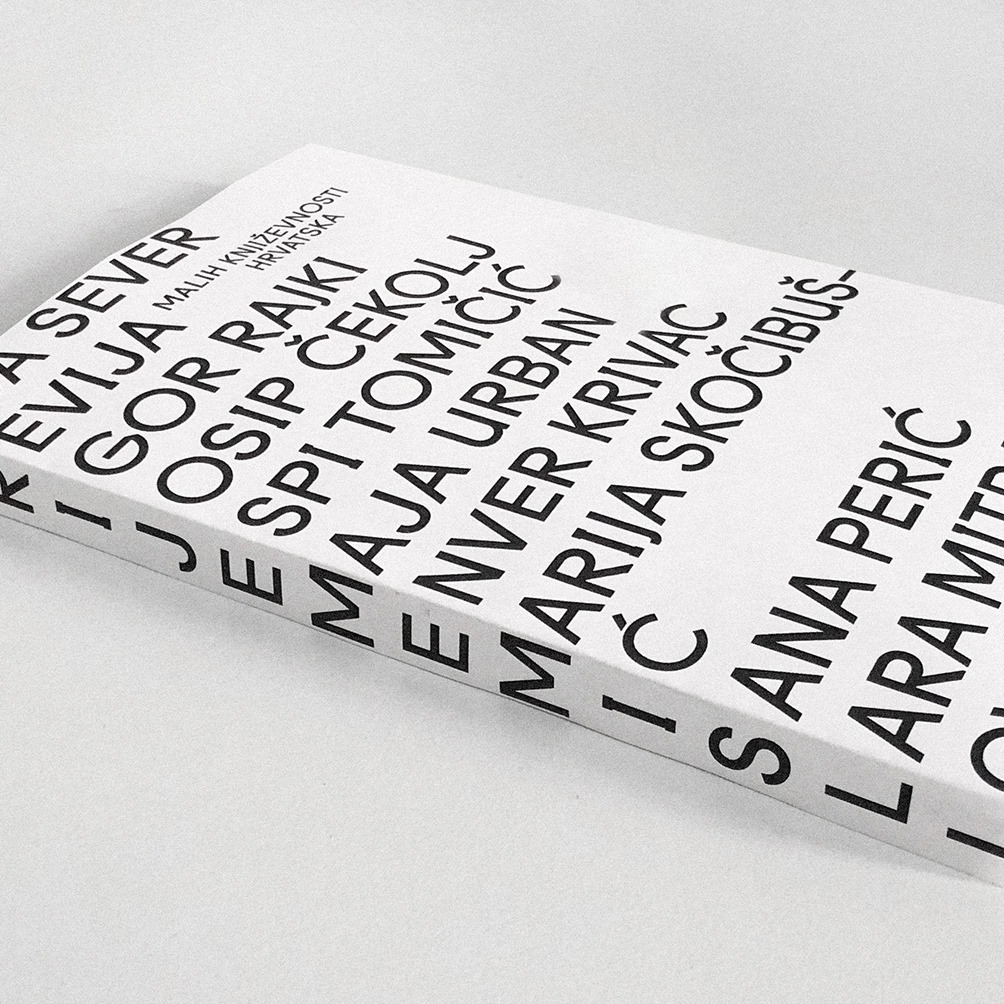 A SEVER
REVIJA
MALIH KNJIŽEVNOSTI
HRVATSKA
IGOR RAJKI
JOSIP ČEKOLJ
ESPI TOMIČIĆ
MAJA URBAN
ENVER KRIVAC
MARIJA SKOČIBUŠ–
IĆ
SANA PERIĆ
LARA MITR